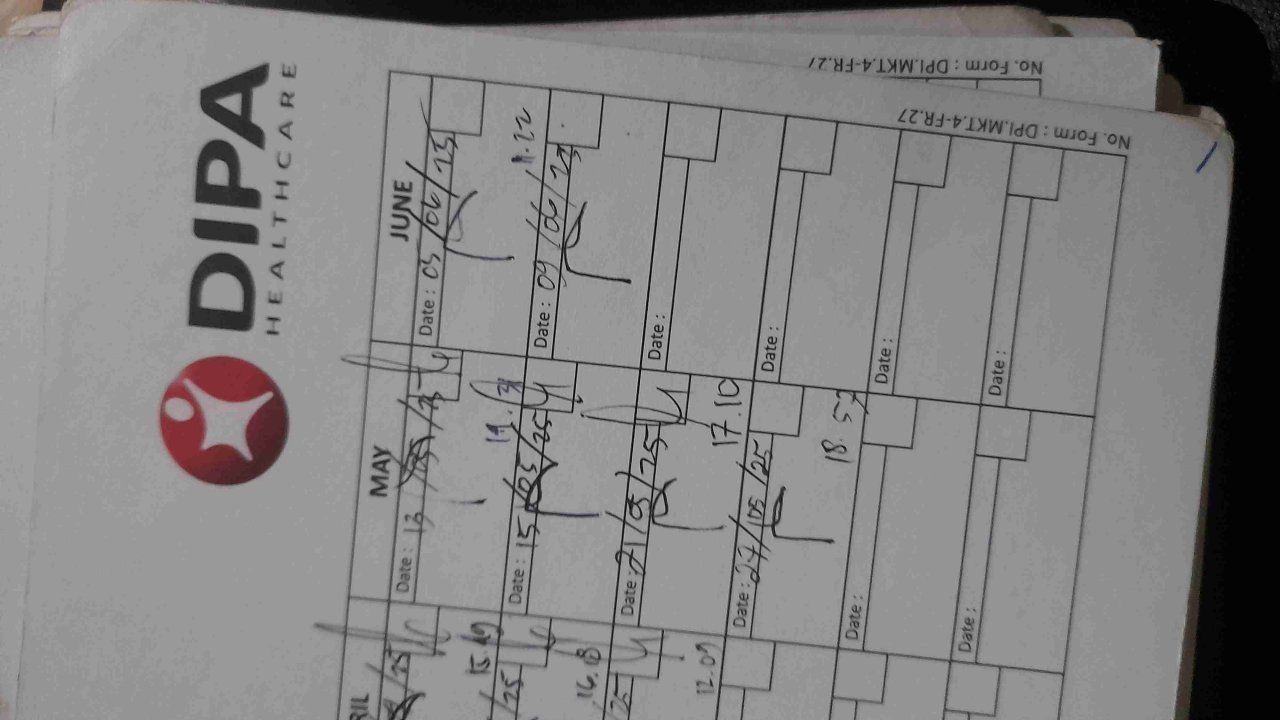 DIPA
HEALTHCARE
No. Form : DPI.MKT.4-FR.27
No. Form : DPI.MKT.4-FR.27
MAY
JUNE
Date : 13 /05/25
Date : 03 /06/25
15.49
19.
Date : 15/05/25
Date : 09/06/25
16.18
Date : 21/05/25
Date :
12.09
17.10
Date : 27/05/25
Date :
18.57
Date :
Date :
Date :
Date :